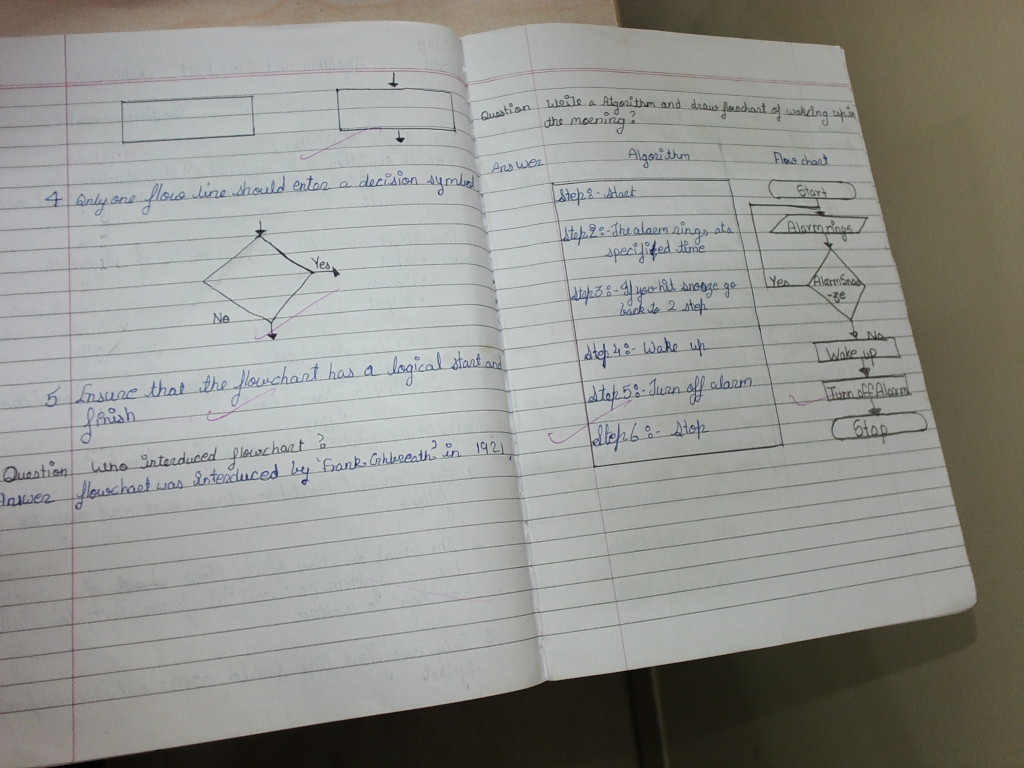 4 Only one flow line should enter a decision symbol.
Yes
No
5 Ensure that the flowchart has a logical start and
finish
Question Who interduced flowchart?
Answer flowchart was interduced by 'Frank Gihbreath' in 1921.
Question Write a Algorithm and draw flowchart of wakeing up in
the morning?
Answer Algorithm Flow chart
Step:- Start
Step 2:- The alarm rings at a
specified time
Step 3:- If you hit snooze go
back to 2 step
Step 4:- Wake up
Step 5:- Turn off alarm
Step 6:- Stop
Start
Alarm rings
Yes Alarm Snoo
-ze
No
Wake up
Turn off Alarm
Stop